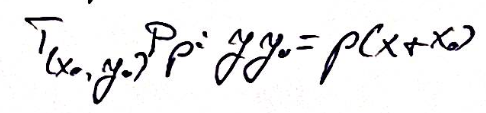 T(x₀, y₀) Pp: yy₀ = p(x + x₀)